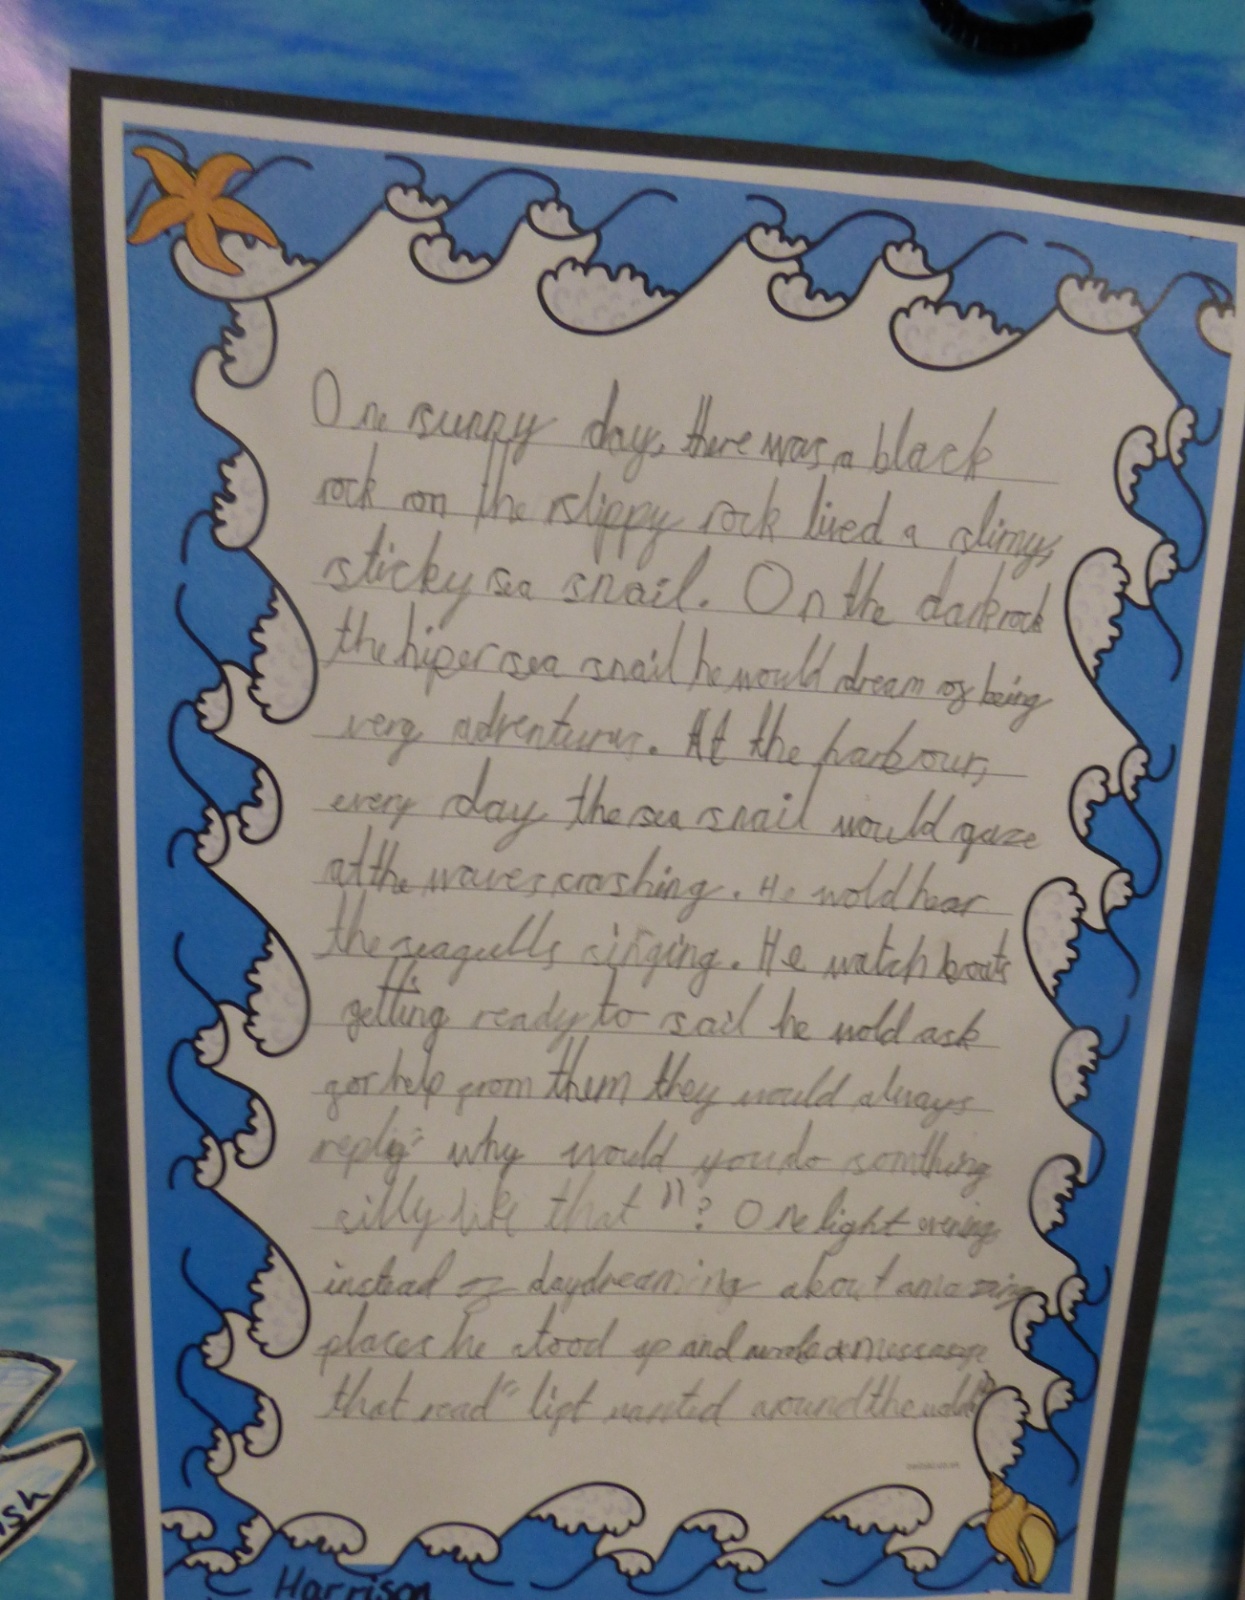 One sunny day, there was a black
rock on the slippy rock lived a slimy,
sticky sea snail. On the dark rock
the hiper sea snail he would dream of being
very adventurus. At the harbour,
every day the sea snail would gaze
at the waves crashing. He wold hear
the seagulls singing. He watch boats
getting ready to sail he wold ask
for help from them they would always
reply" why would you do somthing
silly like that"? One light evening
instead of daydreaming about amazing
places he stood up and wrote a messsage
that read" lift wanted around the world"
Harrison
ish